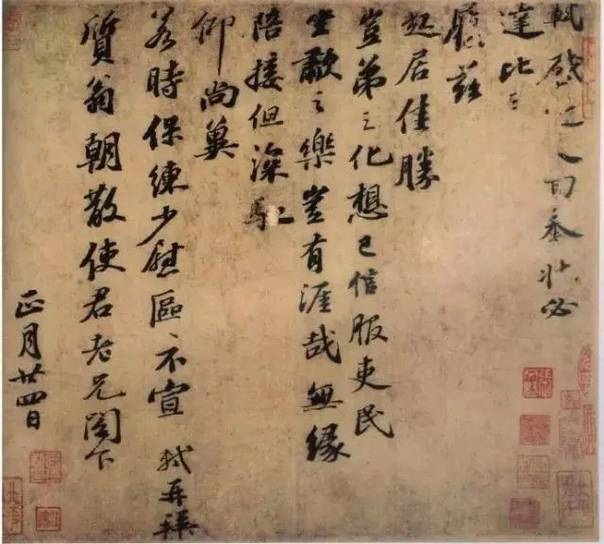 軾啟近人回奉狀必
達比日
履茲
起居佳勝
豈弟之化想已信服吏民
坐歗之樂豈有涯哉無緣
陪接但深馳
仰尚冀
若時保練少慰區不宣 軾再拜
質翁朝散使君老兄閣下
正月廿四日